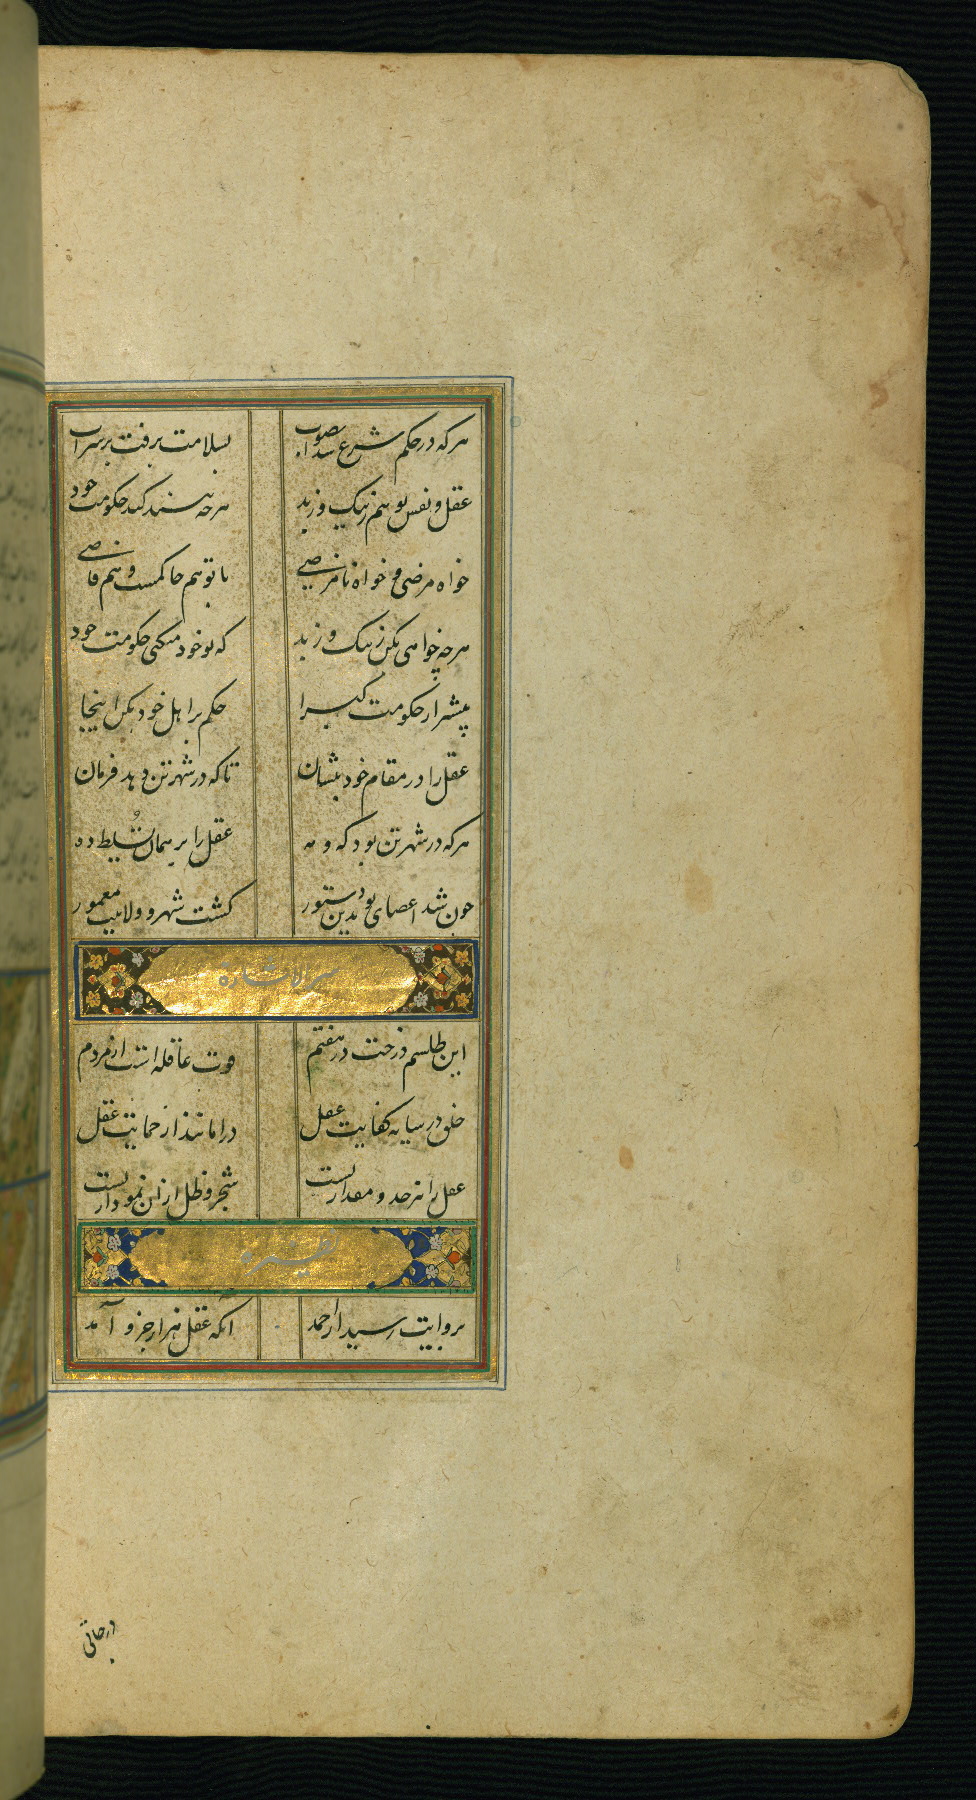 هر که در حکم شرع شد بصواب بسلامت برفت بر سر آب
عقل و نفس تو هم ز نیک و ز بد هر چه بینند کند حکومت خود
خواه مرضی و خواه نامرضی با تو هم حاکمست و هم قاضی
هر چه خواهی بکن ز نیک و ز بد که تو خود میکنی حکومت خود
پیشتر از حکومت کبرا حکم بر اهل خود بکن اینجا
عقل را در مقام خود بنشان تا که در شهر تن دهد فرمان
هر که در شهر تن بود که و مه عقل را بر همان تسلیط ده
چون شد اعضای تو بدین دستور کشت شهر و ولایت معمور
سر الاشاره
این طلسم درخت در هفتم قوت عاقله است از مردم
خلق در سایه کفایت عقل در امانند از حمایت عقل
عقل را نه حد و مقدارست شجر و ظل از آن نمودارست
بروایت رسید از احمد آنکه عقل هزار جزو آمد